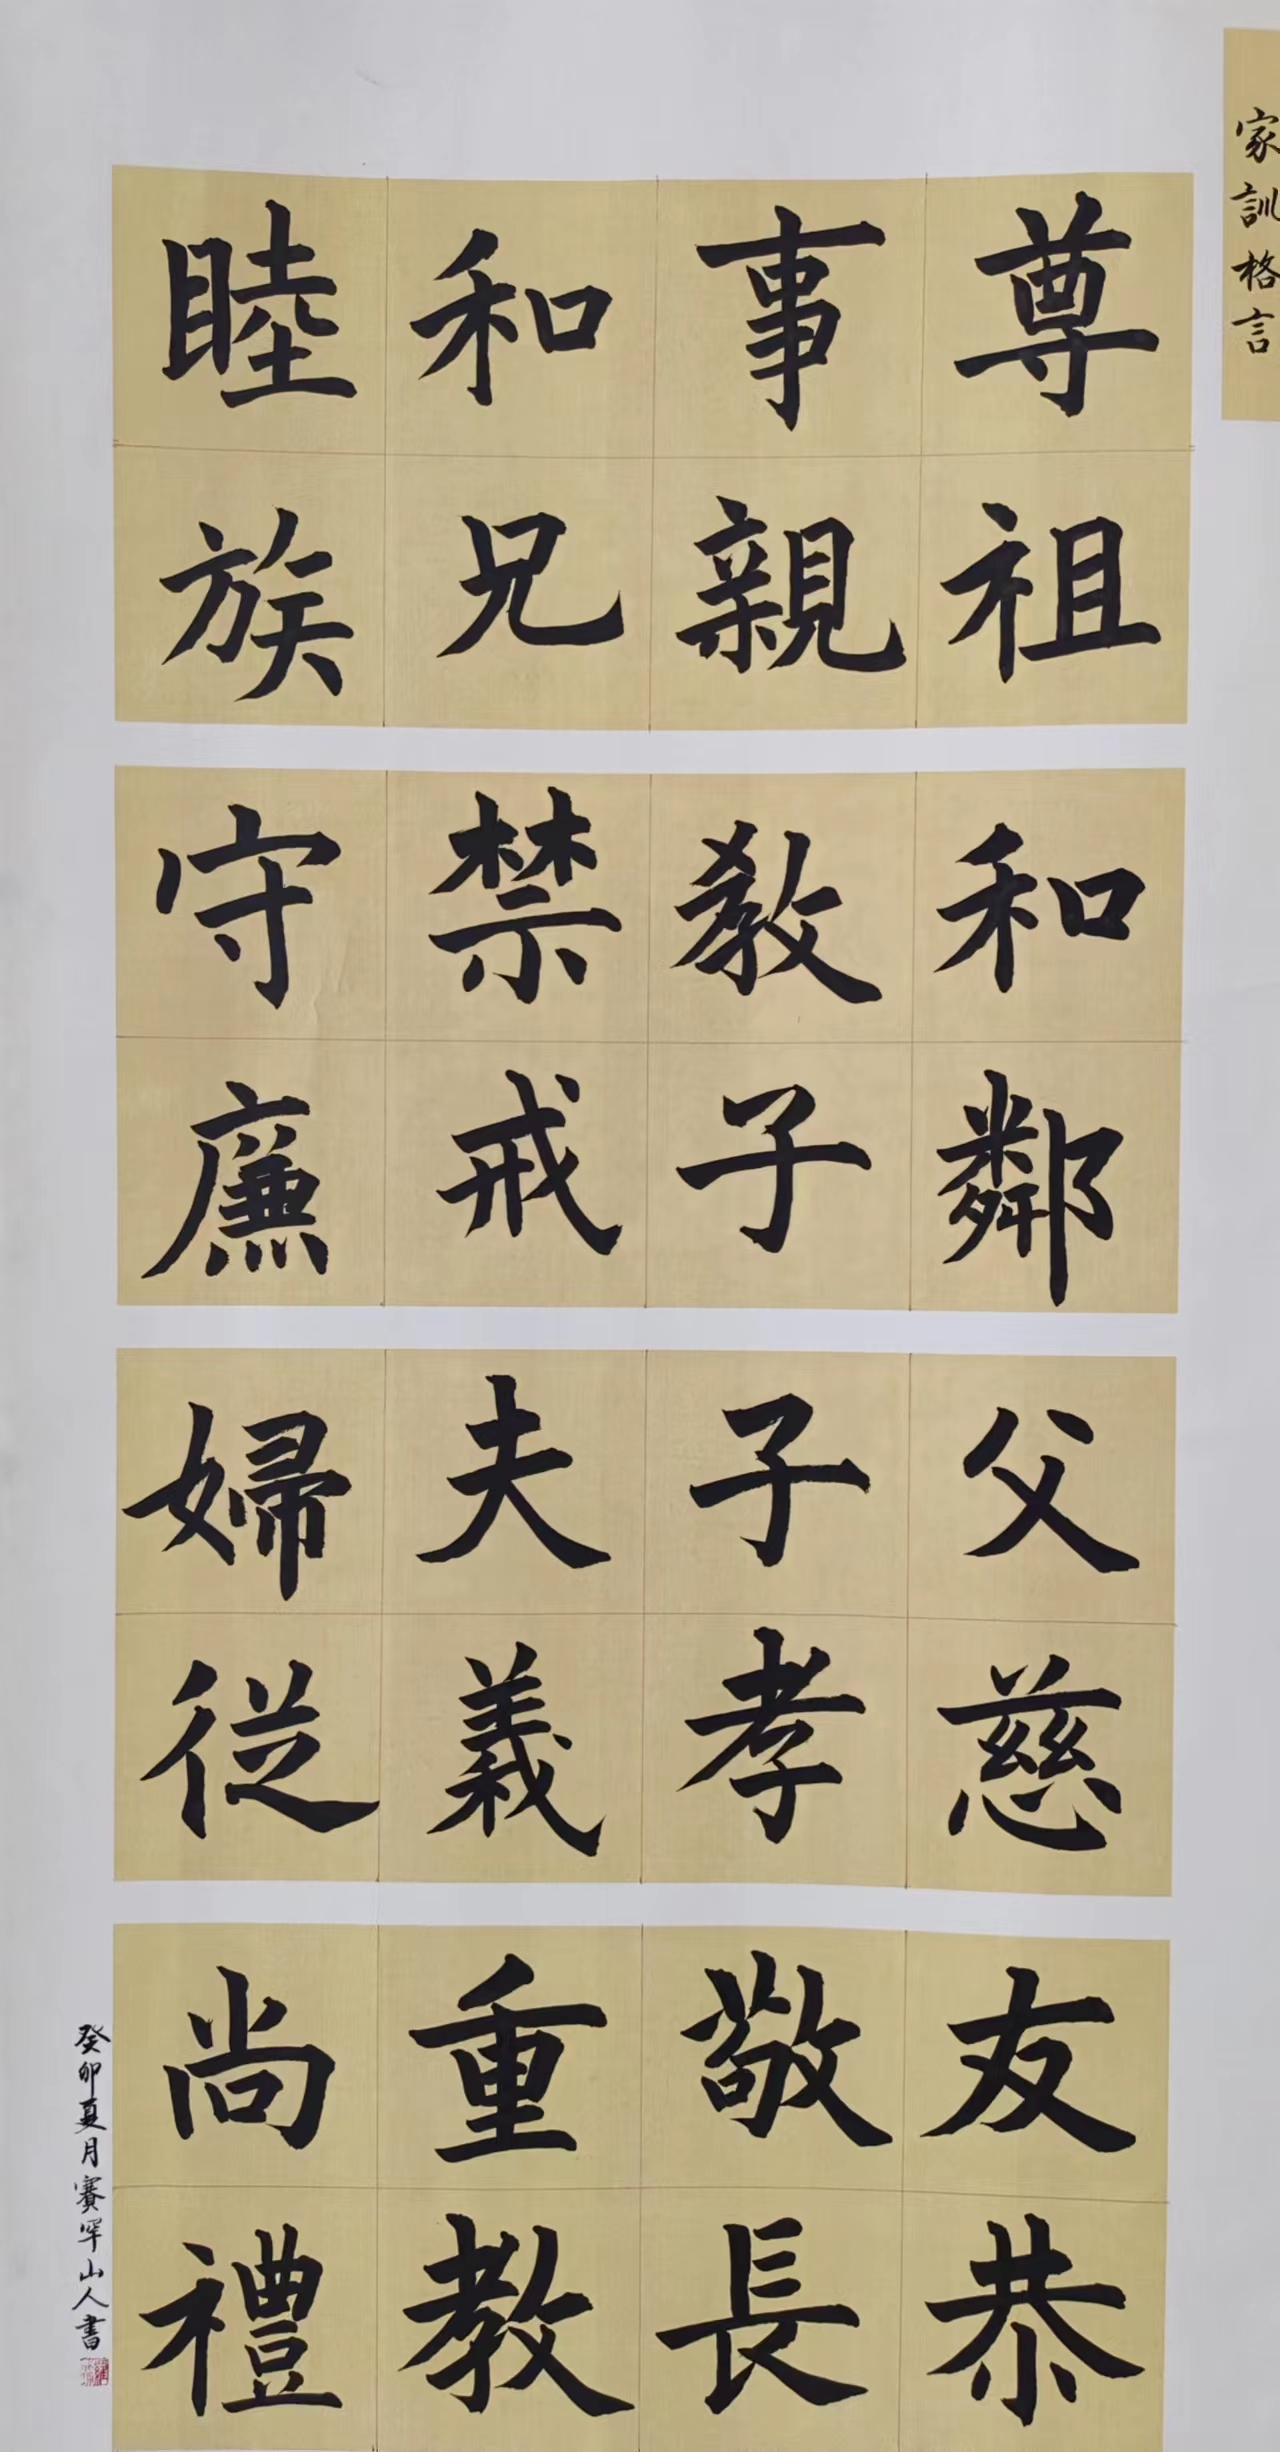 家訓格言
尊祖
事親
和兄
睦族
和鄰
教子
禁戒
守廉
父慈
子孝
夫義
婦從
友恭
敬長
重教
尚禮
癸卯夏月賽罕山人書